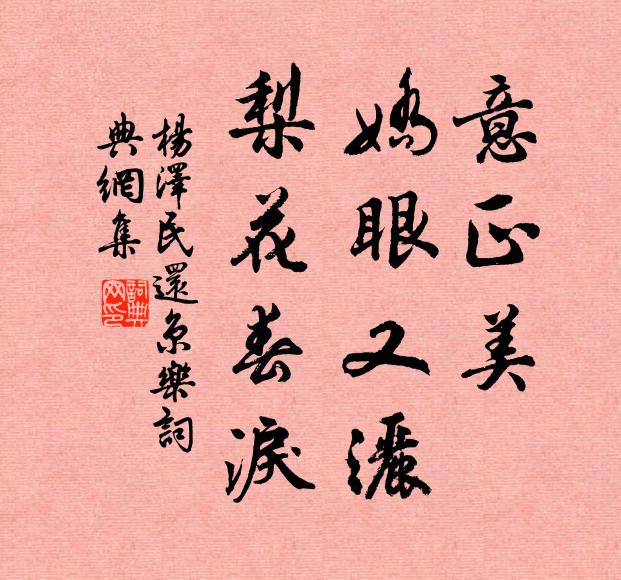 意正美
嬌眼又灑
梨花春淚
楊澤民還京樂詞
典網集
詞典
网印